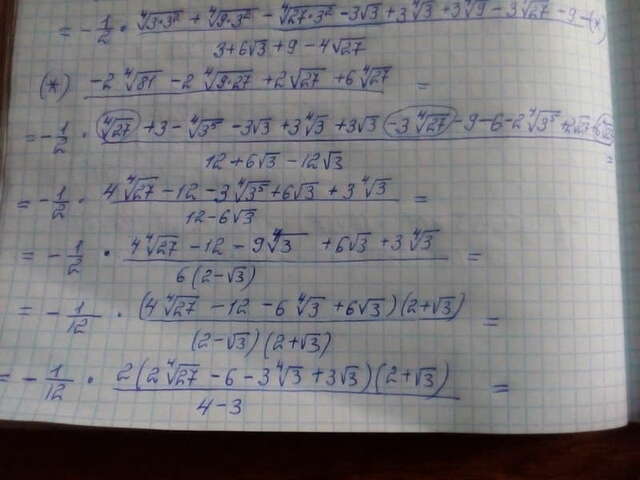 = -1/2 · (∜(3·3²) + ∜(9·3²) - ∜(27·3²) - 3√3 + 3∜3 + 3∜9 - 3∜27 - 9 - (*)) / (3+6√3+9-4√27)
(*) (-2∜81 - 2∜(9·27) + 2√27 + 6∜27) =
= -1/2 · (∜27 + 3 - ∜3⁵ - 3√3 + 3∜3 + 3√3 - 3∜27 - 9 - 6 - 2∜3⁵ + 2√27 + 6∜27) / (12+6√3-12√3) =
= -1/2 · (4∜27 - 12 - 3∜3⁵ + 6√3 + 3∜3) / (12-6√3) =
= -1/2 · (4∜27 - 12 - 9∜3 + 6√3 + 3∜3) / (6(2-√3)) =
= -1/12 · ((4∜27 - 12 - 6∜3 + 6√3)(2+√3)) / ((2-√3)(2+√3)) =
= -1/12 · (2(2∜27 - 6 - 3∜3 + 3√3)(2+√3)) / (4-3) =